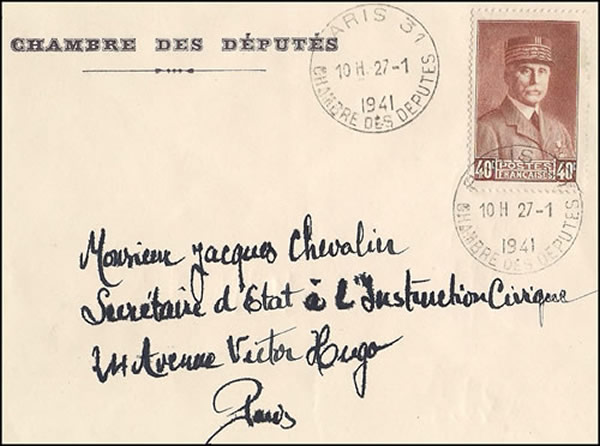 CHAMBRE DES DÉPUTÉS
PARIS 31
10 H 27-1
1941
CHAMBRE DES DEPUTES
40c POSTES 40c
FRANÇAISES
PARIS 31
10 H 27-1
1941
CHAMBRE DES DEPUTES
Monsieur Jacques Chevalier
Secrétaire d'Etat à l'Instruction Civique
Avenue Victor Hugo
Paris